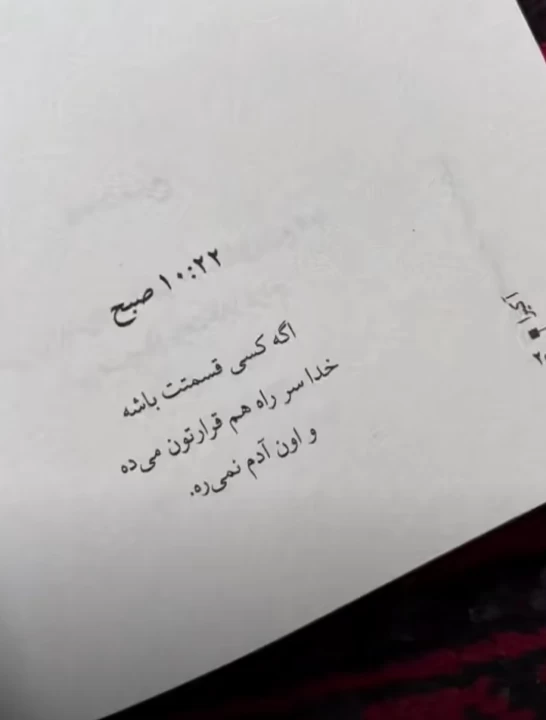 ۱۰:۲۲ صبح
اگه کسی قسمتت باشه
خدا سر راه هم قرارتون می‌ده
و اون آدم نمی‌ره.